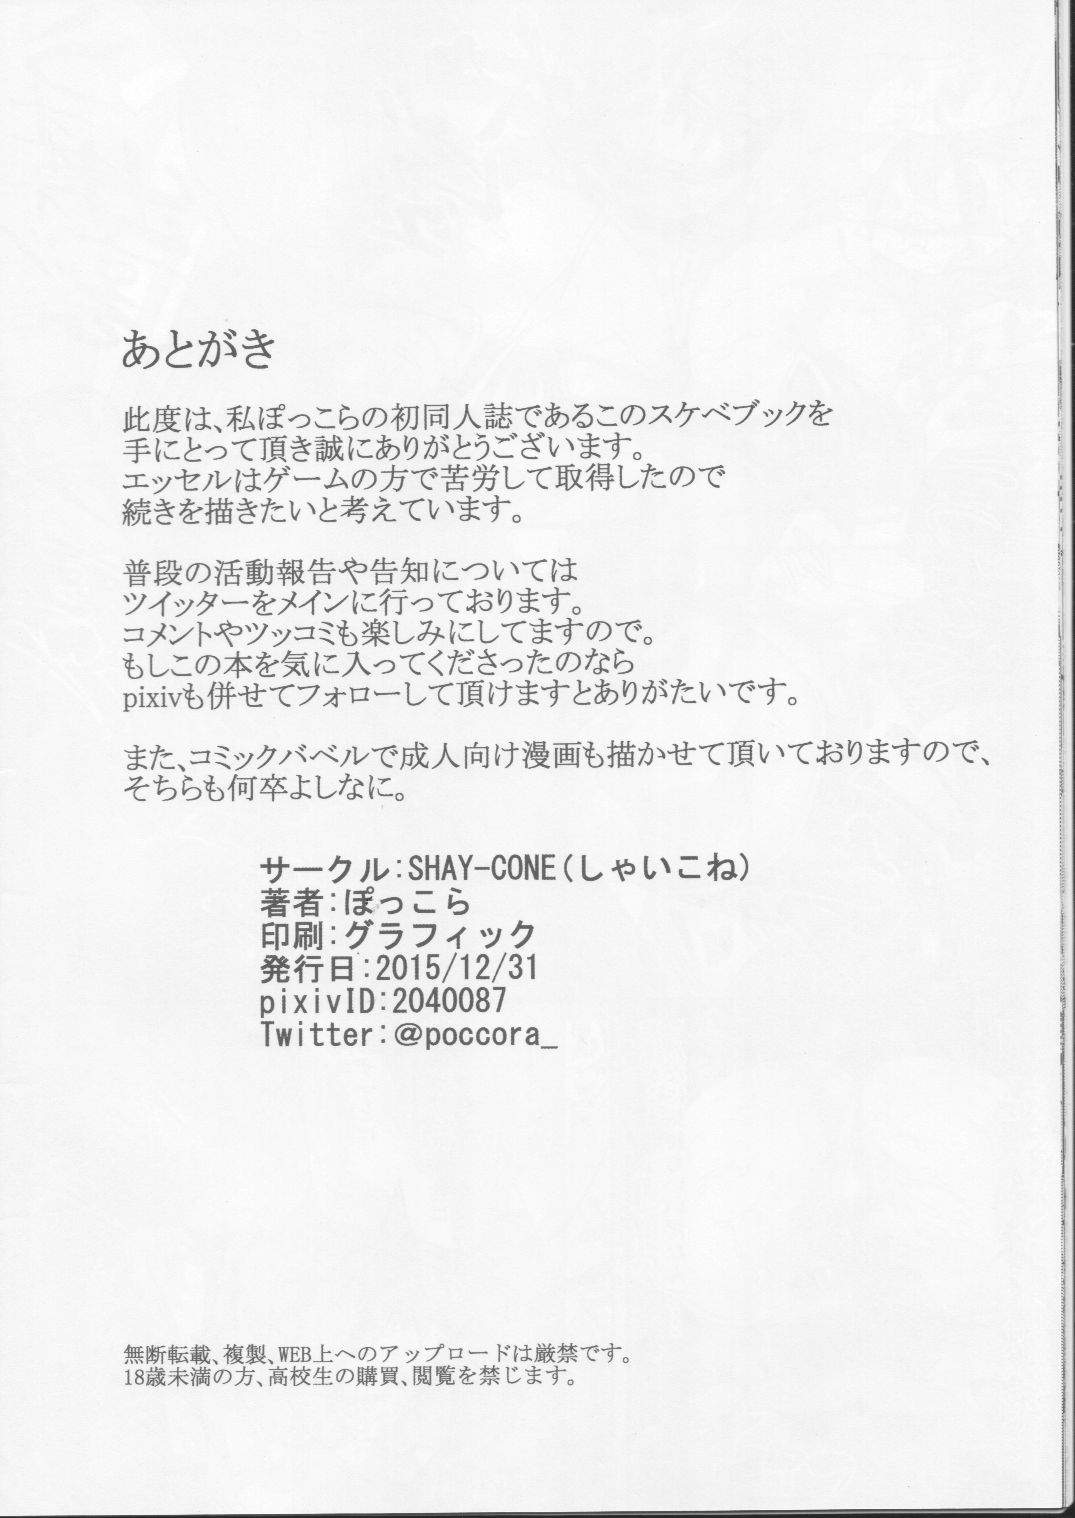 あとがき
此度は、私ぽっこらの初同人誌であるこのスケベブックを
手にとって頂き誠にありがとうございます。
エッセルはゲームの方で苦労して取得したので
続きを描きたいと考えています。
普段の活動報告や告知については
ツイッターをメインに行っております。
コメントやツッコミも楽しみにしてますので。
もしこの本を気に入ってくださったのなら
pixivも併せてフォローして頂けますとありがたいです。
また、コミックバベルで成人向け漫画も描かせて頂いておりますので、
そちらも何卒よしなに。
サークル:SHAY-CONE(しゃいこね)
著者:ぽっこら
印刷:グラフィック
発行日:2015/12/31
pixivID:2040087
Twitter:@poccora_
無断転載、複製、WEB上へのアップロードは厳禁です。
18歳未満の方、高校生の購買、閲覧を禁じます。